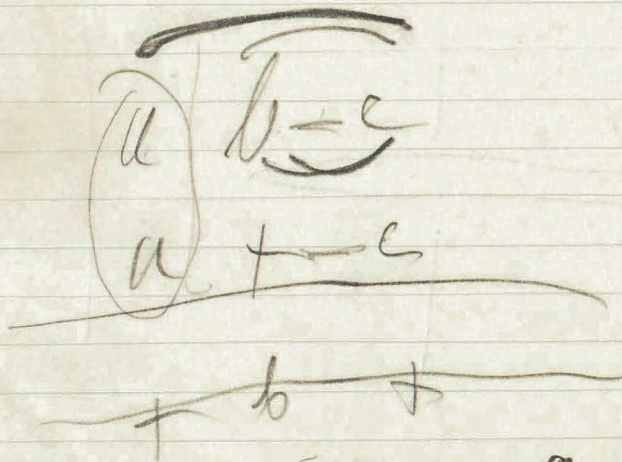 a b - c
a + - c
+ b +
a